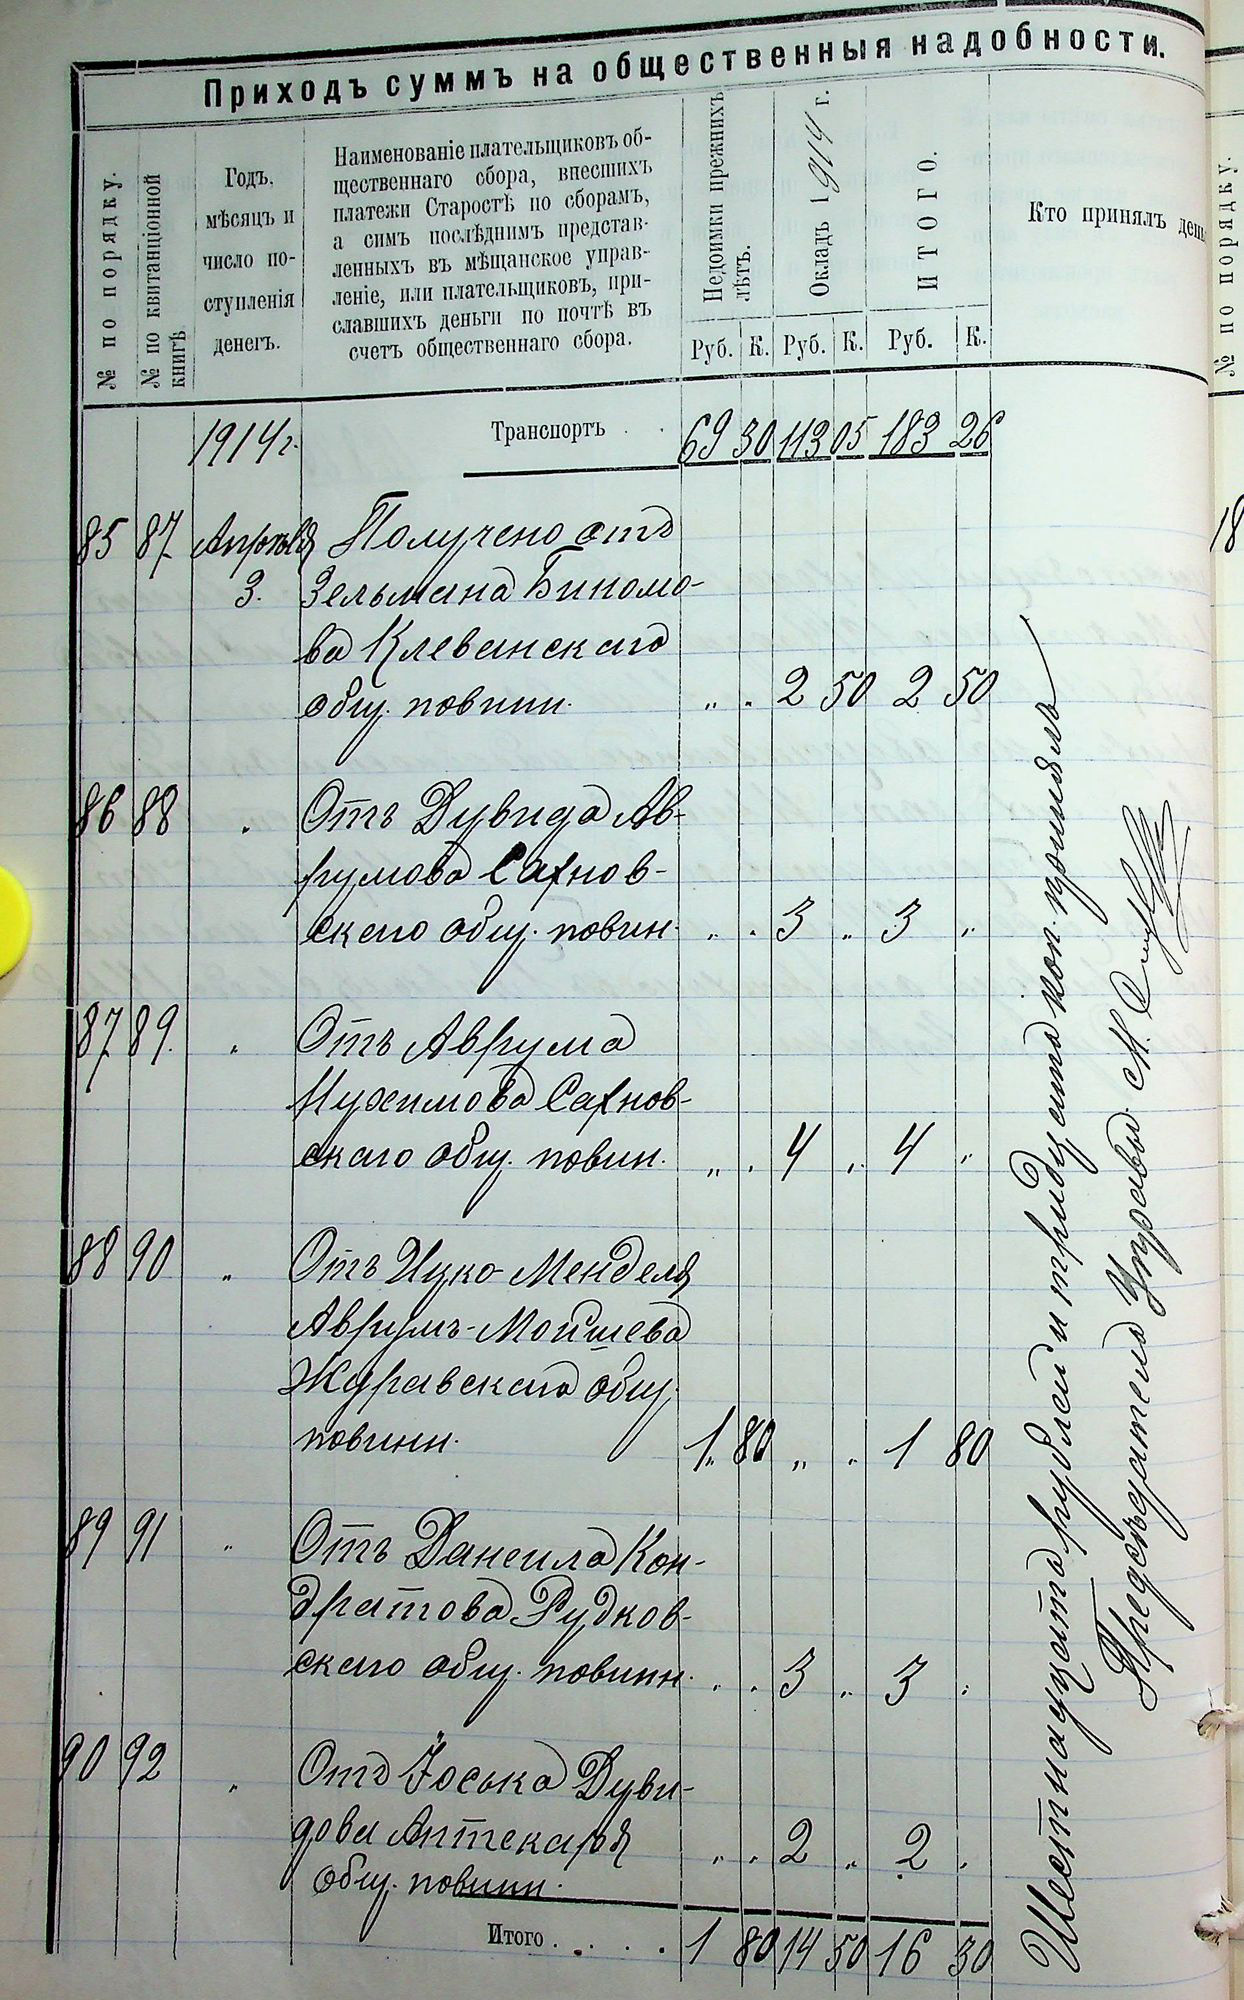 Приходъ суммъ на общественныя надобности.
№ по порядку.
№ по квитанціонной
книгѣ
Годъ,
мѣсяцъ и
число по-
ступленія
денегъ.
Наименованіе плательщиковъ об-
щественнаго сбора, внесшихъ
платежи Старостѣ по сборамъ,
а симъ послѣднимъ представ-
ленныхъ въ мѣщанское управ-
леніе, или плательщиковъ, при-
славшихъ деньги по почтѣ въ
счетъ общественнаго сбора.
Недоимки прежнихъ
лѣтъ.
Окладъ 1914 г.
ИТОГО.
Кто принялъ день
Руб. К. Руб. К. Руб. К.
№ по порядку.
1914 г. Транспортъ . . 69 30 113 05 183 26
85 87 Апрѣля Получено отъ
3. Зельмана Биномо-
ва Клеванскаго
общ. повинн. „ . 2 50 2 50
86 88 „ Отъ Дувида Ав-
румова Сахнов-
скаго общ. повин. „ . 3 „ 3 „
87 89. „ Отъ Аврума
Нухимова Сахнов-
скаго общ. повин. „ . 4 „ 4 „
88 90 „ Отъ Ицко-Менделя
Аврумъ-Мойшева
Журавскаго общ.
повинн. 1 „ 80 „ . 1 80
89 91 „ Отъ Данеила Кон-
дратова Рудков-
скаго общ. повинн. „ . 3 „ 3 „
90 92 „ Отъ Іоська Дуви-
дова Аптекаря „ . 2 „ 2 „
общ. повинн.
Итого . . . . 1 80 14 50 16 30
Шестнадцать рублей и тридцать коп. принялъ
Предсѣдатель Управы М.
18